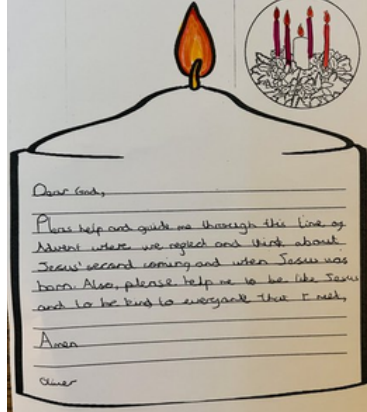 Dear God,
Pleas help and guide me through this time of
Advent where we reflect and think about
Jesus' second coming and when Jesus was
born. Also, please help me to be like Jesus
and to be kind to everyone that I meet,
Amen
Oliver